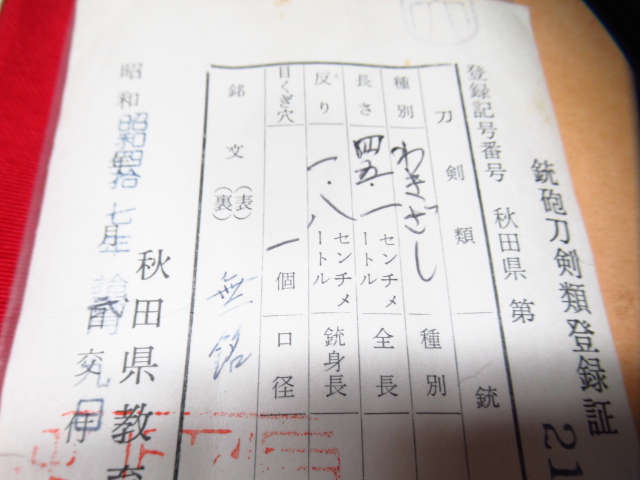 銃砲刀剣類登録証
21
登録記号番号 秋田県 第
刀剣類 銃
種別 わきざし 種別
長さ 四五・一 センチメートル 全長
反り 一・八 センチメートル 銃身長
目くぎ穴 一個 口径
銘文 (表) (裏) 無銘
昭和 年 月 日 交付
昭和四拾七年
秋田県教育